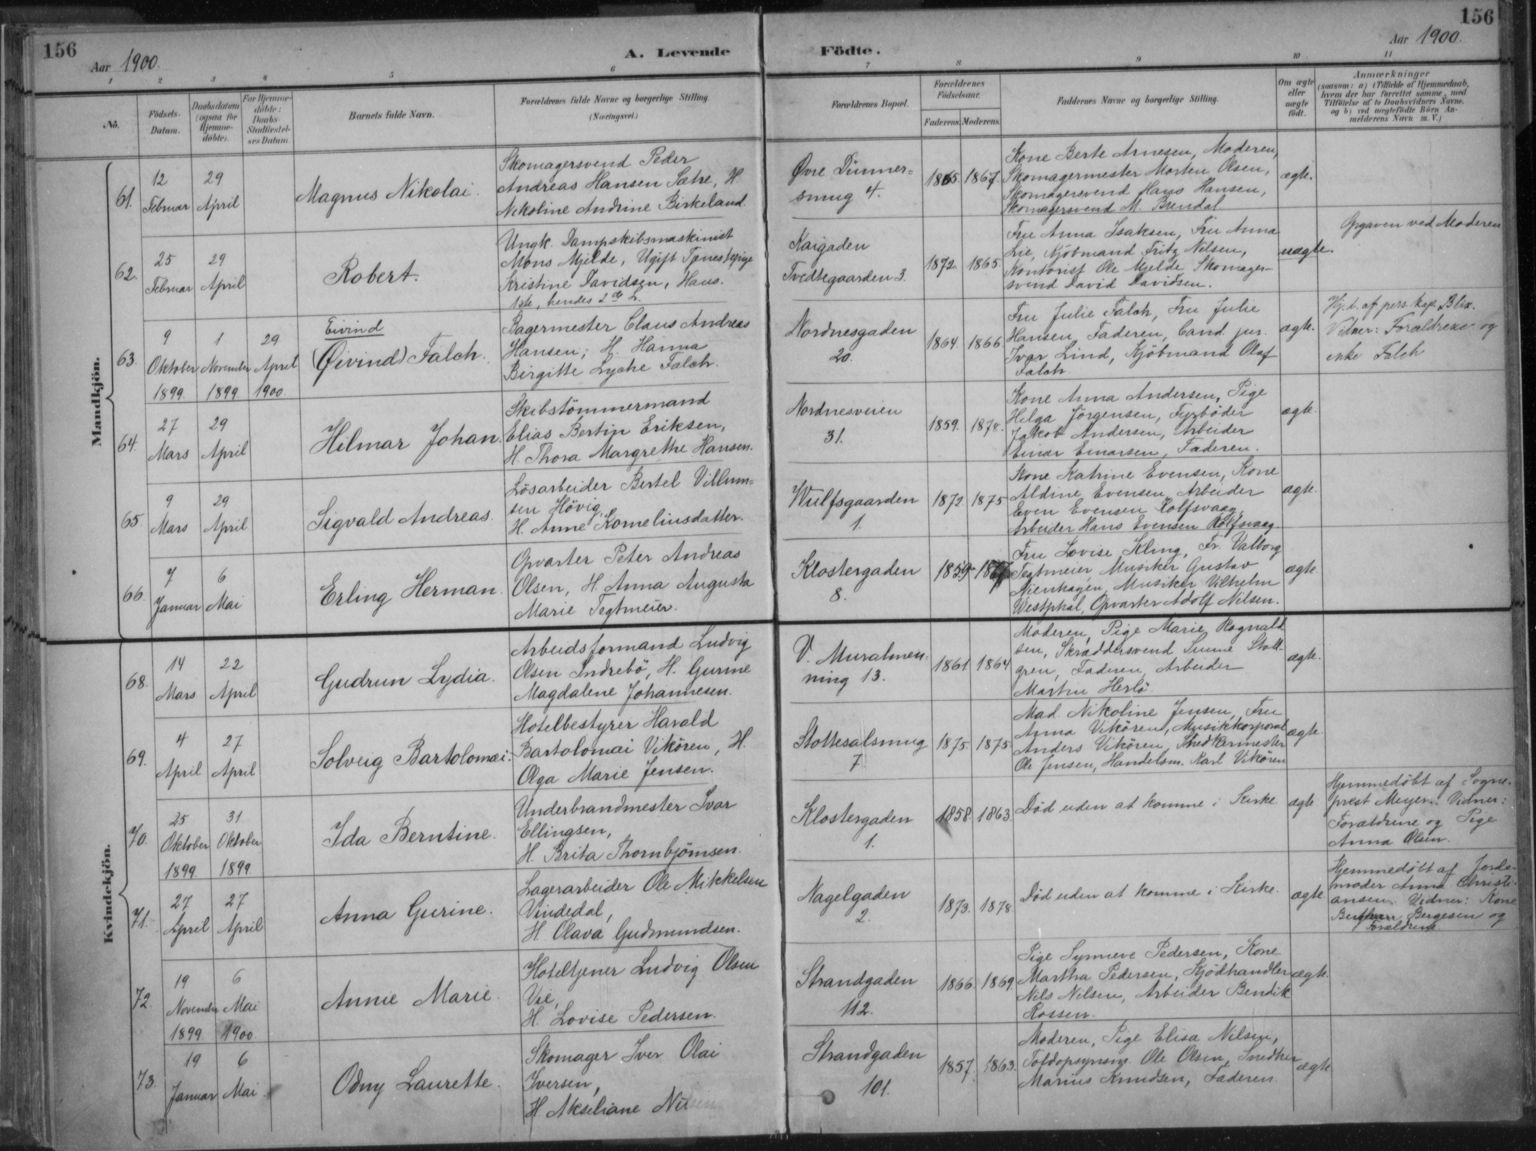 156
Aar 1900.
A. Levende
Fødte.
156
Aar 1900.
1 2 3 4 5 6 7 8 9 10 11
No.
Fødsels-
Datum.
Daabsdatum
(ogsaa for
Hjemme-
døbte).
For Hjemme-
døbte:
Daabs-
Stadfæstel-
ses Datum
Barnets fulde Navn.
Forældrenes fulde Navne og borgerlige Stilling.
(Næringsvei)
Forældrenes Bopæl.
Forældrenes
Fødselsaar.
Faderens. Moderens.
Faddernes Navne og borgerlige Stilling.
Om ægte
eller
uægte
født.
Anmærkninger
(saasom: a) i Tilfælde af Hjemmedaab,
hvem der har forrettet samme, med
Tilføielse af to Daabsvidners Navne,
og b) ved uægtefødte Børn An-
melderens Navn m. V.)
Mandkjön.
61.
12
Februar
29
April
Magnus Nikolai.
Skomagersvend Peder
Andreas Hansen Sætre, H.
Nikoline Andrine Birkeland
Øvre Dinner-
smug 4.
1865 1867
Kone Berte Arnesen, Moderen,
Skomagermester Morten Olsen,
Skomagersvend Hans Hansen,
Skomagersvend M. Brendal
ægte.
62.
25
Februar
29
April
Robert.
Ungk. Dampskibsmaskinist
Mons Mjelde, Ugift Tjenestepige
Kristine Davidsen, Hans
1ste, hendes 2det
Kaigaden
Tvedtegaarden 3.
1872 1865
Fru Anna Isaksen, Fru Anna
Lie, Kjøbmand Fritz Nilsen,
Kontorist Ole Mjelde, Skomager-
svend David Davidsen.
uægte.
Opgaven ved Moderen
63.
9
Oktober
1899
1
November
1899
29
April
1900
Eivind
(Øivind) Falch.
Bagermester Claus Andreas
Hansen, H. Hanna
Birgitte Lyche Falch.
Nordnesgaden
20.
1864 1866
Fru Julie Falch, Fru Julie
Hansen, Faderen, Cand. jur.
Ivar Lind, Kjöbmand Olaf
Falch
ægte.
Hj.d. af pers. kap. Blix.
Vidner: Forældrene og
enke Falch
64.
27
Mars
29
April
Hilmar Johan.
Skibstömmermand
Elias Bertin Eriksen,
H. Thora Margrethe Hansen.
Nordnesveien
31.
1859. 1872.
Kone Anna Andersen, Pige
Helga Jörgensen, Fyrböder
Jakob Andersen, Arbeider
Einar Einarsen, Faderen.
ægte.
65.
9
Mars
29
April
Sigvald Andreas.
Lösarbeider Bertel Villum-
sen Hövig,
H. Anne Korneliusdatter.
Wulfsgaarden
1.
1872. 1875.
Kone Katrine Evensen, Kone
Aldine Evensen, Arbeider
Even Evensen Rolfsvaag,
Arbeider Hans Evensen Rolfsvaag.
ægte.
66.
7
Januar
6
Mai
Erling Herman.
Opvarter Peter Andreas
Olsen, H. Anna Augusta
Marie Tegtmeier.
Klostergaden
8.
1859 1877
Fru Lovise Kling, Fr. Valborg
Tegtmeier, Musiker Gustav
Nienhagen, Musiker Vilhelm
Westphal, Opvarter Adolf Nilsen.
ægte.
Kvindekjön.
68.
14
Mars
22
April
Gudrun Lydia.
Arbeidsformand Ludvig
Olsen Indrebö, H. Gurine
Magdalene Johannesen.
V. Muralmen-
ning 13.
1861 1864
Moderen, Pige Marie Rognald-
sen, Skræddersvend Stolt-
gren, Faderen, Arbeider
Martin Herlö
ægte.
69.
4
April
27
April
Solveig Bartolomæi.
Hotelbestyrer Harald
Bartolomæi Vikören, H.
Olga Marie Jensen.
Stöttesalsmug
7
1875. 1875.
Mad. Nikoline Jensen, Fru
Anna Vikören, Musikkorporal
Anders Vikören, Snedkermester
Ole Jensen, Handelsm. Karl Vikören
ægte.
70.
25
Oktober
1899
31
Oktober
1899
Ida Berntine.
Underbrandmester Ivar
Ellingsen,
H. Brita Thornbjörnsen.
Klostergaden
1.
1858. 1863.
Död uden at komme i Kirke
ægte.
Hjemmedöbt af Sogne-
prest Meyer. Vidner:
Forældrene og Pige
Anna Olsen.
71.
27
April
27
April
Anna Gurine.
Lagerarbeider Ole Mikkelsen
Vindedal,
H. Olava Gudmundsen.
Nagelgaden
2.
1873. 1878
Död uden at komme i Kirke.
ægte
Hjemmedöbt af Jorde-
moder Anna Christi-
ansen. Vidner: Kone
Bergesen og
Forældrene
72.
19
November
1899
6
Mai
1900
Annie Marie.
Hoteltjener Ludvig Olsen
Vie,
H. Lovise Pedersen.
Strandgaden
112.
1866 1869
Pige Synneve Pedersen, Kone
Martha Pedersen, Kjödhandler
Nils Nilsen, Arbeider Bendik
Rossen.
ægte.
73.
19
Januar
6
Mai
Odny Laurette.
Skomager Iver Olai
Iversen,
H. Akseliane Nilsen
Strandgaden
101.
1857. 1863.
Moderen, Pige Elisa Nilsen,
Toldopsynsm. Ole Olsen, Snedker
Marius Knudsen, Faderen
ægte